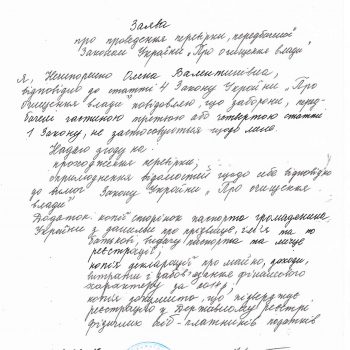 Заява
про проведення перевірки, передбаченої
Законом України „Про очищення влади“
Я, Нечипоренко Олена Валентинівна,
відповідно до статті 4 Закону України „Про
очищення влади“ повідомляю, що заборони, перед-
бачені частиною третьою або четвертою статті
1 Закону, не застосовуються щодо мене.
Надаю згоду на:
проходження перевірки;
оприлюднення відомостей щодо себе відповідно
до вимог Закону України „Про очищення
влади“
Додаток: копії сторінок паспорта громадянина
України з даними про прізвище, ім'я та по
батькові, видачу паспорта та місце
реєстрації;
копія декларації про майно, доходи,
витрати і зобов'язання фінансового
характеру за
копія документа, що підтверджує
реєстрацію у Державному реєстрі
фізичних осіб-платників податків